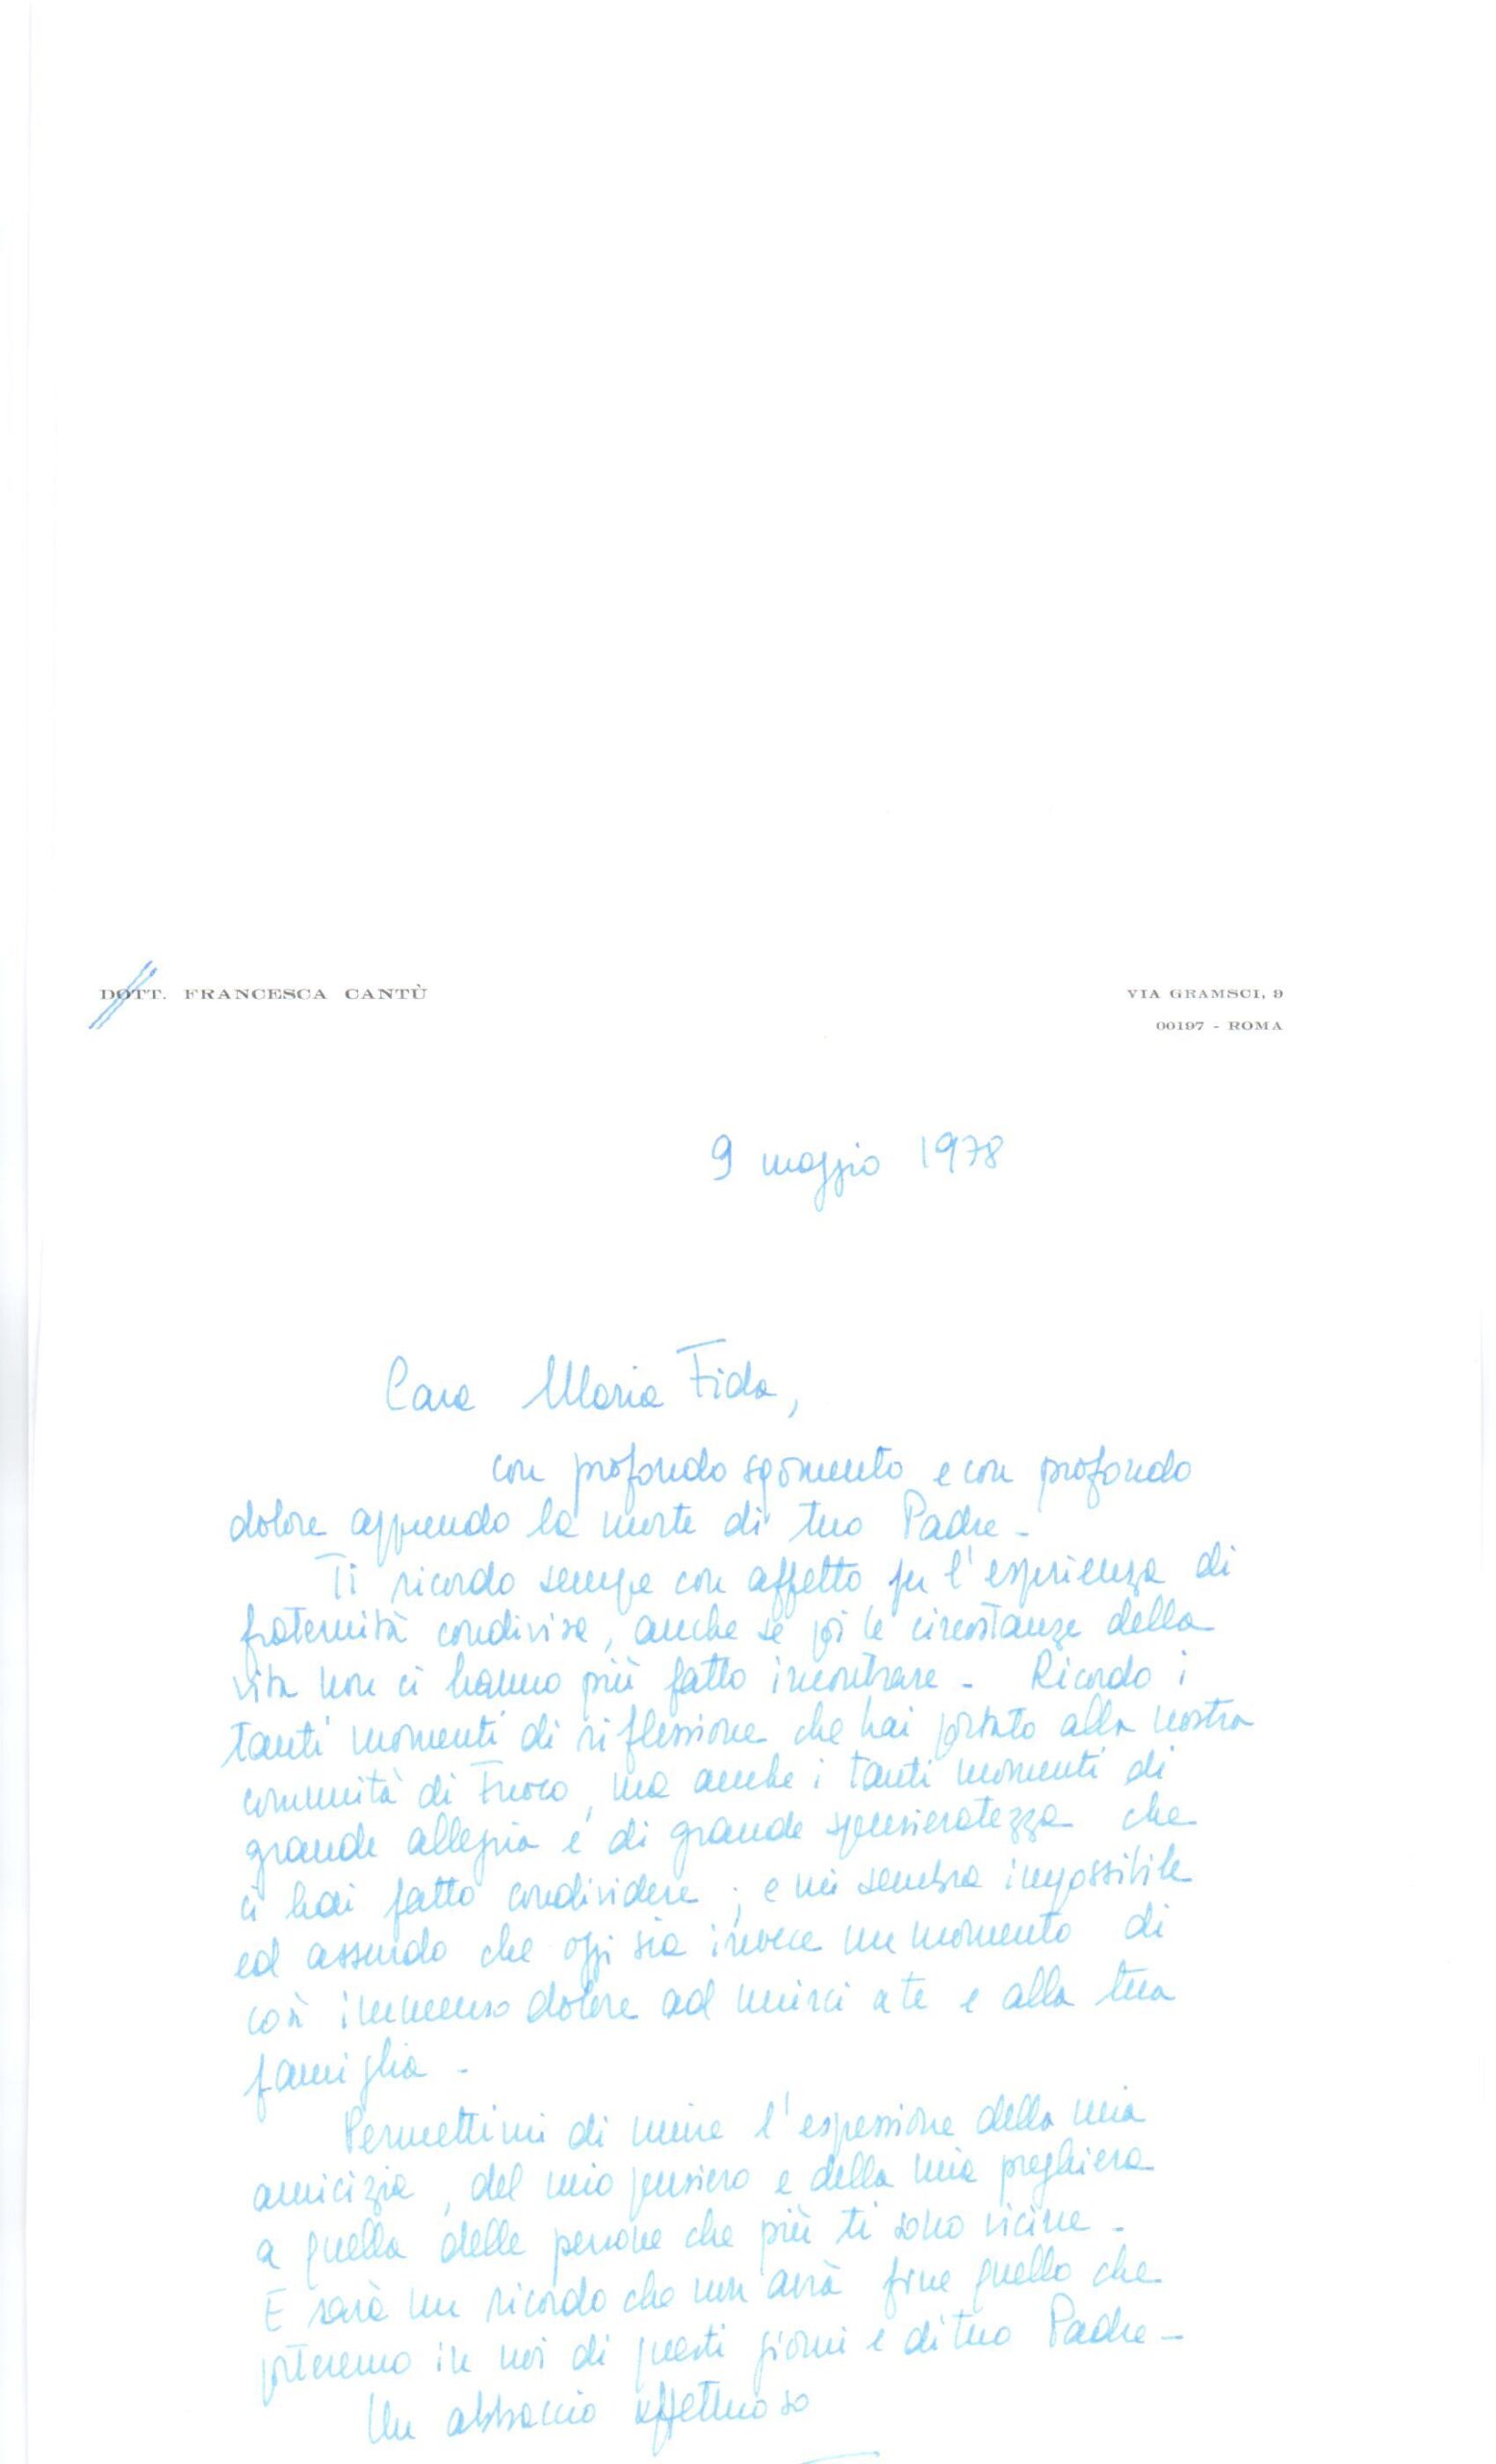 DOTT. FRANCESCA CANTÙ
VIA GRAMSCI, 9
00197 - ROMA
9 maggio 1978
Cara Maria Fida,
con profondo sgomento e con profondo
dolore apprendo la morte di tuo Padre -
Ti ricordo sempre con affetto per l'esperienza di
fraternità condivisa, anche se poi le circostanze della
vita non ci hanno più fatto incontrare - Ricordo i
tanti momenti di riflessione che hai portato alla nostra
comunità di Fuoco, ma anche i tanti momenti di
grande allegria e di grande spensieratezza che
ci hai fatto condividere; e mi sembra impossibile
ed assurdo che oggi sia invece un momento di
così immenso dolore ad unirci a te e alla tua
famiglia -
Permettimi di unire l'espressione della mia
amicizia, del mio pensiero e della mia preghiera
a quella delle persone che più ti sono vicine -
E sarà un ricordo che non avrà fine quello che
porteremo in noi di questi giorni e di tuo Padre -
Un abbraccio affettuoso